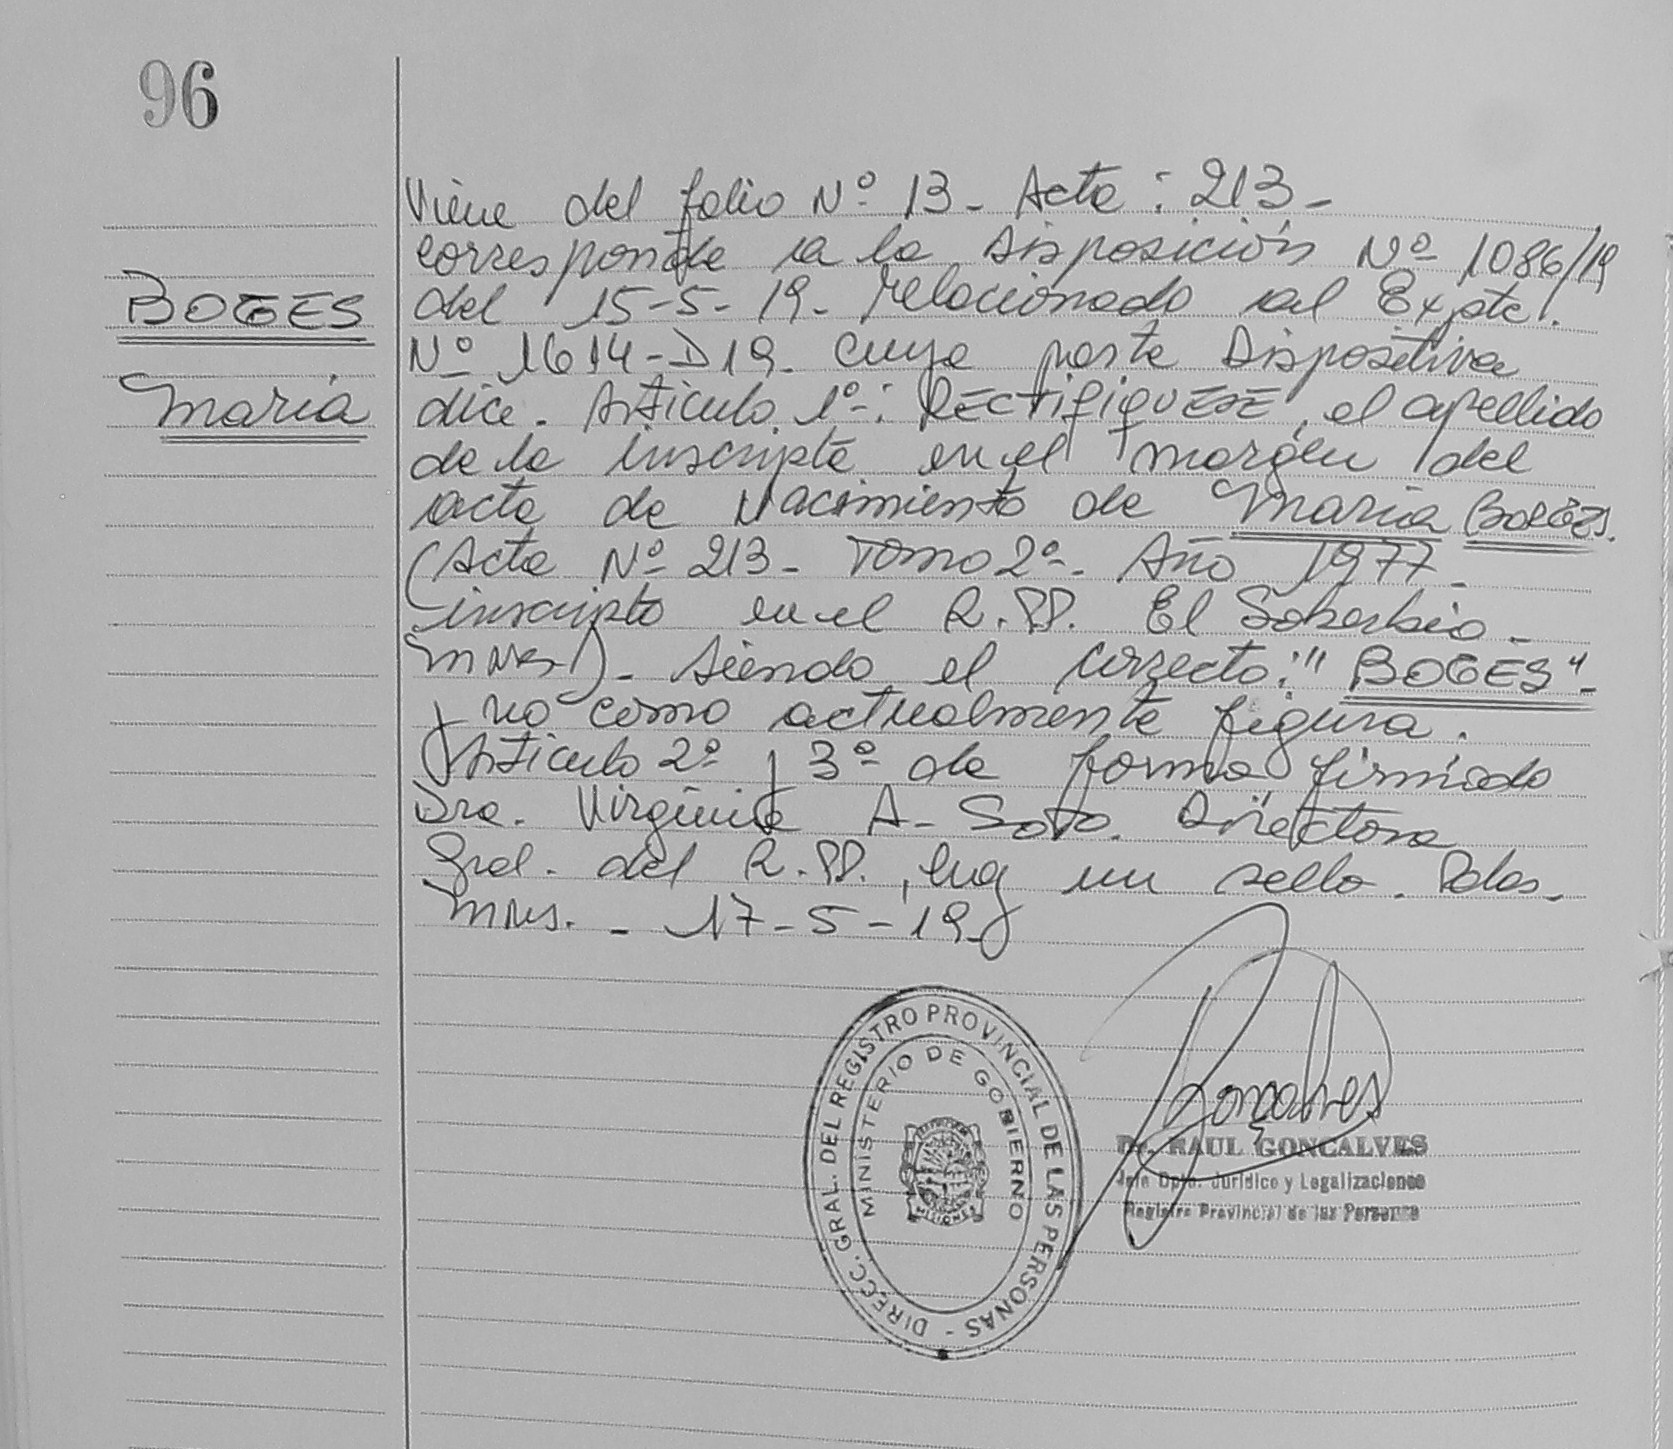 96
BOGES
Maria
Viene del folio Nº 13 - Acta : 213 -
corresponde a la Disposición Nº 1086/19
del 15-5-19 - relacionado al Expte.
Nº 1614-D19 - cuya parte Dispositiva
dice - Articulo 1º : RECTIFIQUESE, el apellido
de la inscripta en el margen del
acta de Nacimiento de Maria BORGES.
(Acta Nº 213 - Tomo 2º - Año 1977 -
inscripto en el R.PP. El Soberbio -
Mnes) - siendo el correcto: "BOGES" -
y no como actualmente figura.
Articulo 2º y 3º de forma firmado
Dra. Virginia A. Soto. Directora
Gral. del R.PP., hay un sello. Pdas -
Mnes. - 17-5-19 -
DIRECC. GRAL. DEL REGISTRO PROVINCIAL DE LAS PERSONAS -
MINISTERIO DE GOBIERNO
MISIONES
Goncalves
Dr. RAUL GONCALVES
Jefe Dpto. Jurídico y Legalizaciones
Registro Provincial de las Personas